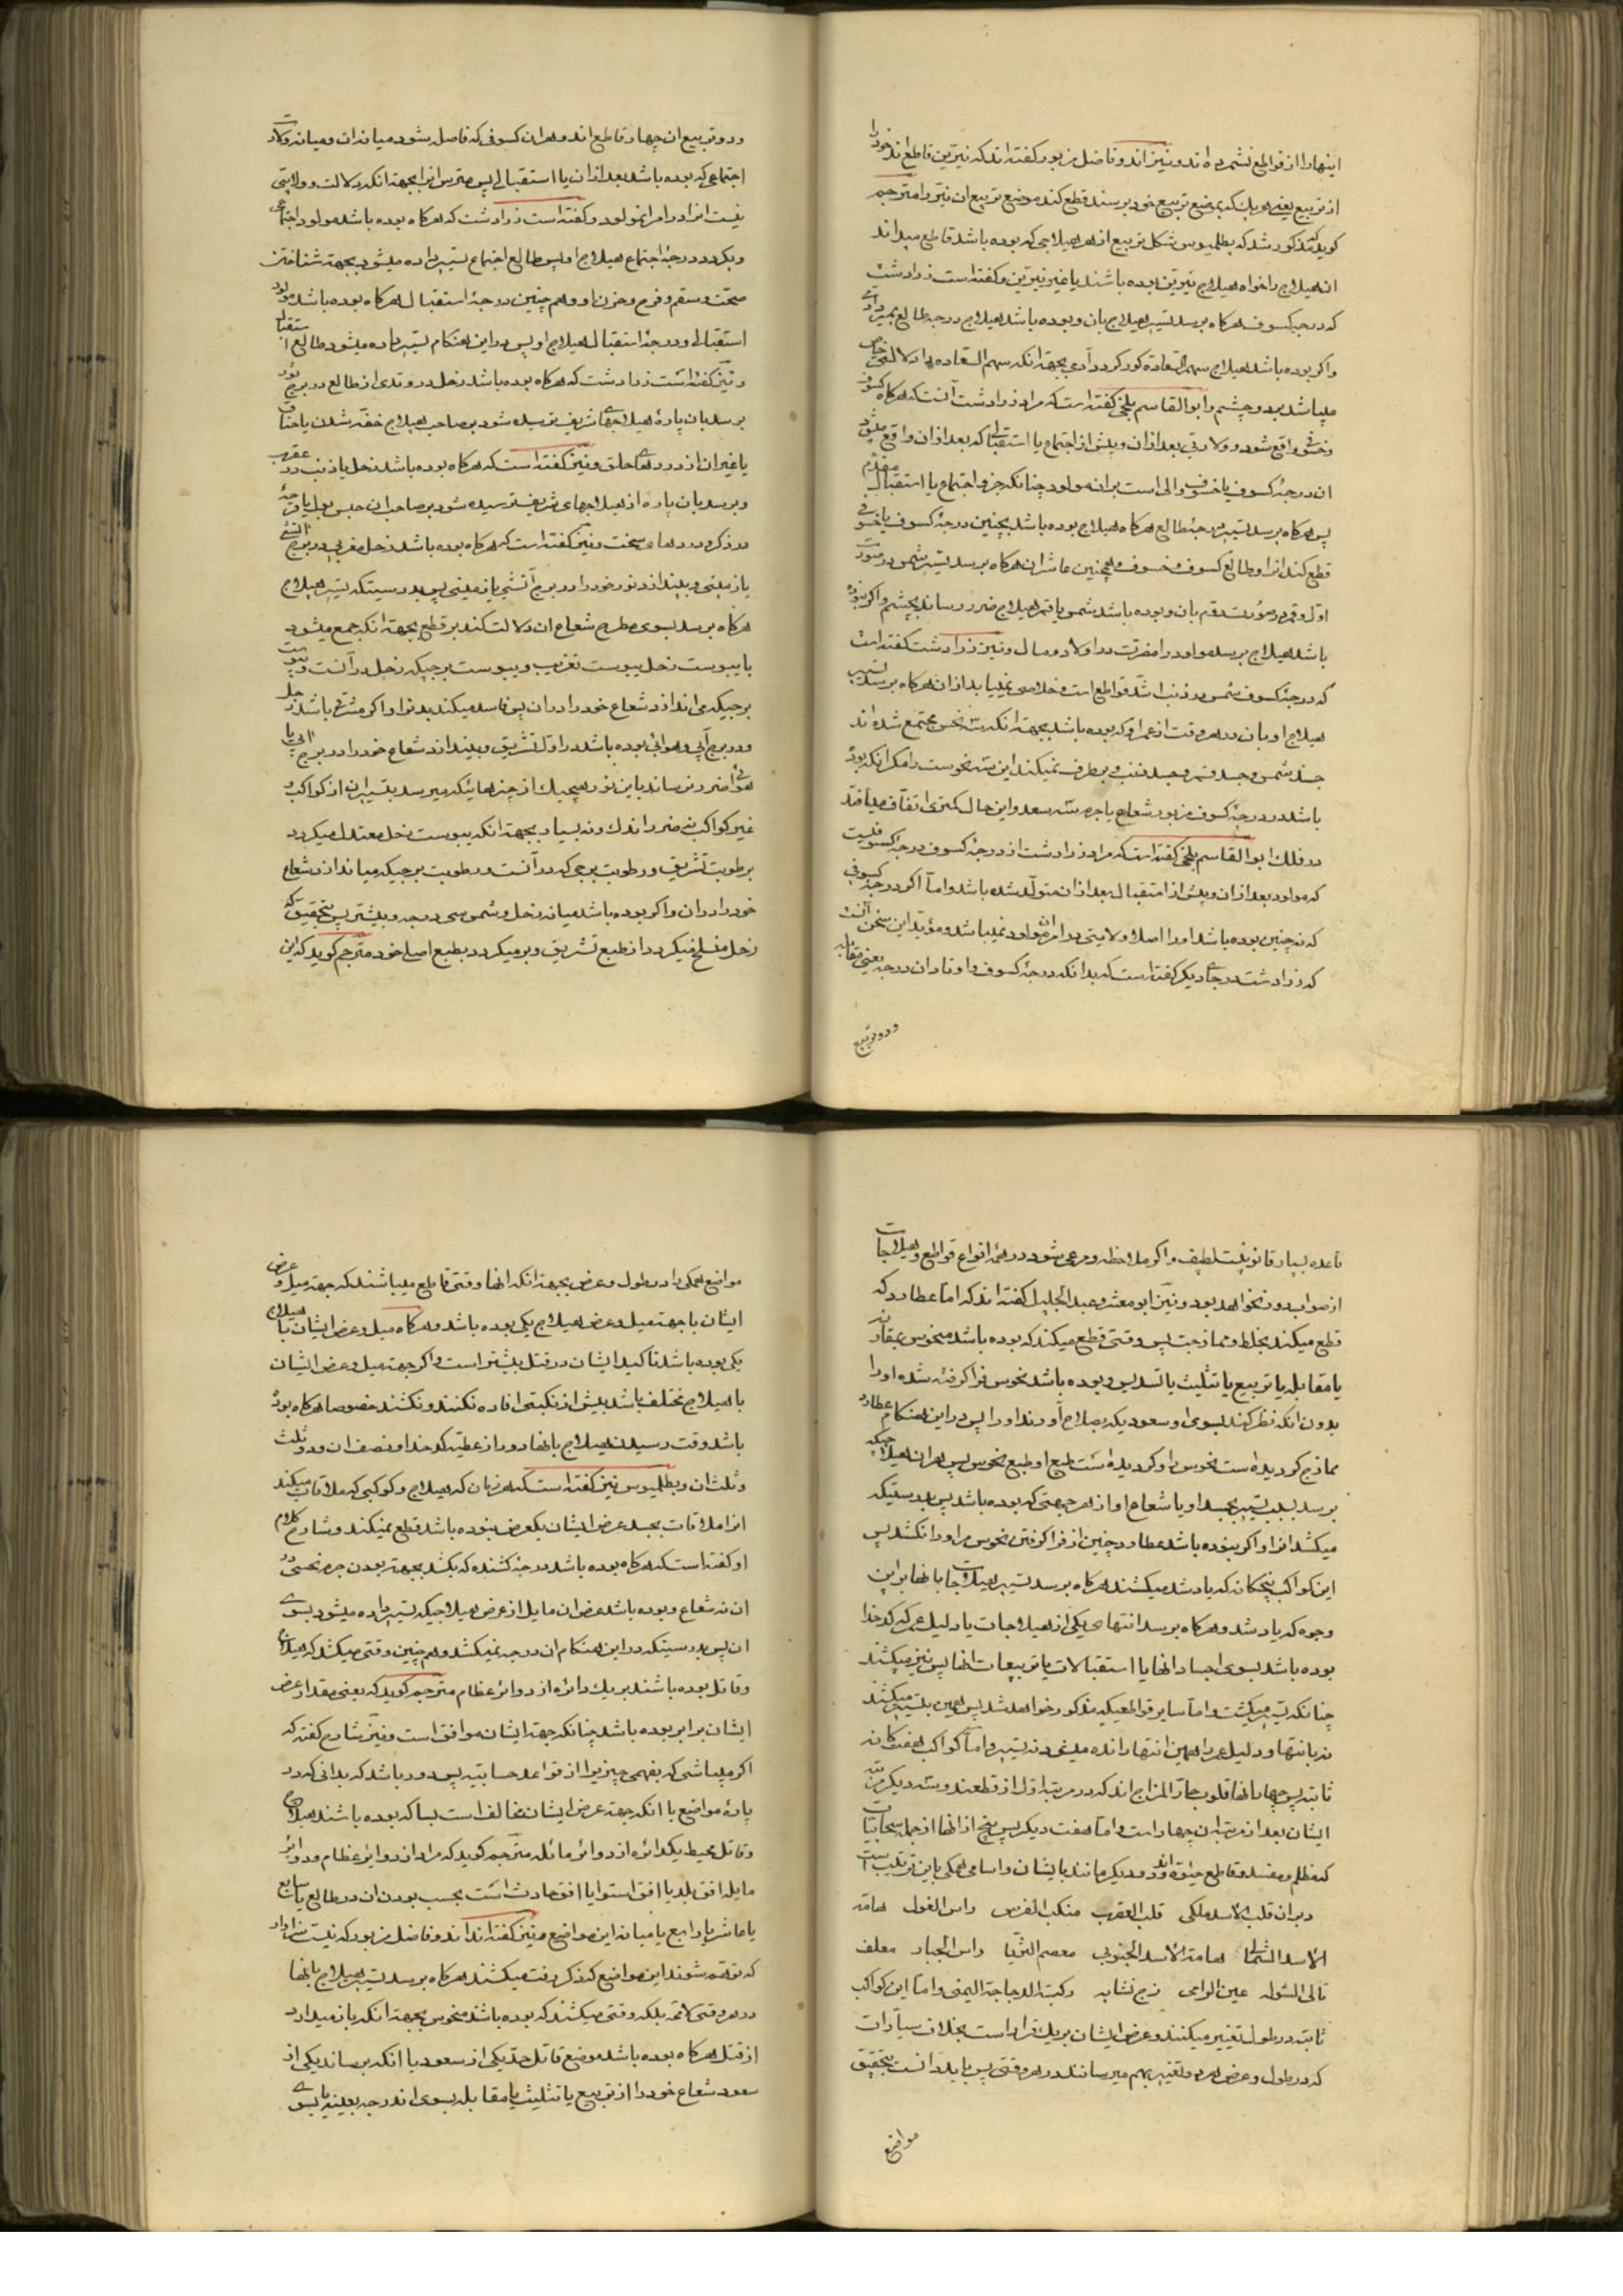 اینها را از قواطع نشمرده اند و نیز اند و فاضل مزبور گفته اند که نیّرین قاطع اند خود را
از تربیع یعنی هر یک که بموضع تربیع خود برسند قطع کند موضع تربیع ان نیّر را مترجم
کوید مذکور شد که بطلمیوس شکل تربیع از هر هیلاجی که بوده باشد قاطع میداند
ان هیلاج را خواه هیلاج نیّرین بوده باشند یا غیر نیّرین و کفته است زرادشت
که درجه کسوف هر کاه برسد تسییر هیلاج بان و بوده باشد هیلاج درجه طالع بمیرد
و اکر بوده باشد هیلاج سهم السّعادة کور کردد آدمی بجهة انکه سهم السّعاده را دلالتی خاص
میباشد بر دو چشم و ابو القاسم بلخی کفته است که مراد زرادشت آنست که هر کاه کسوف
و خسوفی واقع شود و ولادتی بعد از ان و پیش از اجتماع یا استقبالی که بعد از ان واقع میشود
ان درجهٔ کسوف یا خسوف والی است بر ان مولود چنانکه جزو اجتماع یا استقبال مقدّم
پس هر کاه برسد تسییر درجهٔ طالع هر کاه هیلاج بوده باشد بچنین درجهٔ کسوف یا خسوفی
قطع کند انرا و طالع کسوف و خسوف و همچنین عاشر ان هر کاه برسد تسییر شمس در صورت
اول و قمر در صورت دویم بان و بوده باشد شمس یا قمر هیلاج ضرر رساند بچشم و اکر نبوده
باشد هیلاج برسد مولود را مضرّت در اولاد و مال و نیز زرادشت کفته است
که درجهٔ کسوف شمس در ذنب اشدّ قواطع است و خلاصی نمییابد از ان هر کاه برسد تسییر
هیلاج او بان در هر وقت از عمر او که بوده باشد بجهة انکه سه نحس مجتمع شده اند
جسد شمس و جسد قمر و جسد ذنب و برطرف نمیکند این سه نحوست را مکر انکه بوده
باشد در درجهٔ کسوف مزبور شعاع یا جرم سه سعد و این حال کمتر اتفاق میافتد
در فلک ابو القاسم بلخی کفته است که مراد زرادشت از درجهٔ کسوف درجهٔ کسوفیست
که مولود بعد از ان و پیش از استقبال بعد از ان متولّد شده باشد و امّا اکر درجهٔ کسوفی
که نه چنین بوده باشد او را اصلا ولایتی در امر مولود نمیباشد و مؤید این سخن آنست
که زرادشت در جای دیکر کفته است که بدانکه درجهٔ کسوف و اوتاد ان درجه یعنی مقابله
و دو تربیع
و دو تربیع ان چهار قاطع اند و هر ان کسوفی که فاصل بشود میانه ان و میانه ولادت
اجتماعی که بوده باشد بعد از ان یا استقبالی پس مترس انرا بجهة انکه دلالت و ولایتی
نیست انرا در امر انمولود و کفته است زرادشت که هر کاه بوده باشد مولود اجتماعی
و بکردد درجهٔ اجتماع هیلاج او پس طالع اجتماع تسییر داده میشود بجهة شناختن
صحّت و سقم و فرح و حزن او و هم چنین درجهٔ استقبال هر کاه بوده باشد مولود
استقبالی و درجهٔ استقبال هیلاج او پس در این هنکام تسییر داده میشود طالع استقبال
و نیز کفته است زرادشت که هر کاه بوده باشد زحل در وتدی از طالع در برج ثور
برسد بان پارهٔ هیلاجهای شریف ترسیده شود بر صاحب هیلاج خفه شدن یا خناق
یا غیر ان از دردهای حلق و نیز کفته است که هر کاه بوده باشد زحل یا ذنب در عقرب
و برسد بان پاره از هیلاجهای شریف ترسیده شود بر صاحب ان حبس بول یا قرحهٔ
در ذکر و دردهای سخت و نیز کفته است که هر کاه بوده باشد زحل مغربی در برج آتشی
یا زمینی و بیندازد نور خود را در برج آتشی یا زمینی پس بدرستیکه تسییر هیلاج
هر کاه برسد بسوی مطرح شعاع ان دلالت کند بر قطع بجهة انکه جمع میشود
با یبوست زحل یبوست تغریب و یبوست برجیکه زحل در آنست و یبوست
برجیکه می اندازد شعاع خود را در ان پس فاسد میکند بدنرا و اکر مشرقی باشد زحل
و در برج آبی و هوائی بوده باشد در اوّل تشریق و بیندازد شعاع خود را در برج آبی یا
هوائی ضرر نرساند باین نور هیچیک از چیزهائیکه میرسد بتسییر ان از کواکب و
غیر کواکب نه ضرر اندک و نه بسیار بجهة انکه یبوست زحل معتدل میکردد
برطوبت تشریق و رطوبت برجی که در آنست و رطوبت برجیکه میاندازد شعاع
خود را در ان و اکر بوده باشد میانه زحل و شمس سی درجه و بیشتر پس بتحقیق که
زحل منسلخ میکردد از طبع تشریق و برمیکردد بطبع اصلی خود مترجم کوید که این
قاعده بسیار قانونیست لطیف و اکر ملاحظه و مرعی شود در همه انواع قواطع و هیلاجات
از صواب دور نخواهد بود و نیز ابو معشر و عبد الجلیل کفته اند که امّا عطارد که
قطع میکند بخلط و ممازجت پس وقتی قطع میکند که بوده باشد منحوس بمقارنه
یا مقابله یا تربیع یا تثلیث یا تسدیس و بوده باشد نحوس فرا کرفته شده او را
بدون انکه نظر کنند بسوی او سعودیکه بصلاح آورند او را پس در این هنکام عطارد
ممازج کردیده است نحوس را و کردیده است طبع او طبع نحوس پس هر ان هیلاجیکه
برسد بسبب تسییر بجسد او یا شعاع او از هر جهتی که بوده باشد پس بدرستیکه
میکشد انرا و اکر نبوده باشد عطارد چنین از فرا کرفتن نحوس مر او را نکشد پس
این کواکب پنجکانه که یاد شد میکشند هر کاه برسد تسییر هیلاجات بانها بر این
وجوه که یاد شد و هر کاه برسد انتهای یکی از هیلاجات یا دلیل عمر که کدخدا
بوده باشد بسوی اجساد انها یا استقبالات یا تربیعات انها پس نیز میکشند
چنانکه تسییر میکشت و امّا سایر قواطعیکه مذکور خواهد شد پس همین بتسییر میکشند
نه بانتها و دلیل عمر را همین انتها رانده میشود نه تسییر و امّا کواکب هفتکانه
ثابته پس چهار انها قلوب حارّ المزاج اند که در مرتبه اوّل از قطعند و سه دیکر مرتبه
ایشان بعد از مرتبه این چهار است و امّا هفت دیکر پس پنج از انها از جمله سحابیات
که مظلم و مفسد و قاطع حیوة اند و دو دیکر مانند بایشان و اسامی همکی باین ترتیب است
دبران قلب الاسد ملکی قلب العقرب منکب الفرس راس الغول هامة
الاسد الشمالی هامة الاسد الجنوبی معصم الثریّا راس الجبار معلف
تالی الشوله عین الرامی زج نشابه رکبة الدجاجة الیمنی و امّا این کواکب
ثابته در طول تغییر میکنند و عرض ایشان بر یک قرار است بخلاف سیّارات
که در طول و عرض هر دو تغییر بهم میرسانند در هر وقتی پس باید دانست بتحقیق
مواضع
مواضع همکی را در طول و عرض بجهة انکه انها وقتی قاطع میباشند که جهة میل و عرض
ایشان با جهة میل و عرض هیلاج یکی بوده باشد و هر کاه میل و عرض ایشان با هیلاج
یکی بوده باشد تاکید ایشان در قتل بیشتر است و اکر جهة میل و عرض ایشان
با هیلاج مختلف باشد بیش از نکبتی افاده نکنند و نکشند خصوصا هر کاه بوده
باشد وقت رسیدن هیلاج بانها دور از عطیّه کدخدا و نصف ان و دو ثلث
و ثلث ان و بطلمیوس نیز کفته است که هر زمان که هیلاج و کوکبی که ملاقات میکند
انرا ملاقات بجسد عرض ایشان یکعرض نبوده باشد قطع نمیکند و شارح کلام
او کفته است که هر کاه بوده باشد درجهٔ کشنده که بکشد بجهة بودن جرم نحسی در
ان نه شعاع و بوده باشد عرض ان مایل از عرض هیلاجیکه تسییر داده میشود بسوی
ان پس بدرستیکه در این هنکام ان درجه نمیکشد و هم چنین وقتی میکشد که هیلاج
و قاتل بوده باشند بر یک دائره از دوائر عظام مترجم کوید که یعنی مقدار عرض
ایشان برابر بوده باشد چنانکه جهة ایشان موافق است و نیز شارح کفته که
اکر میباشی که بفهمی چیزیرا از قواعد حسابیّه پس دور باشد که بدانی که در
پارهٔ مواضع با انکه جهة عرض ایشان مخالف است بسا که بوده باشند هیلاج
و قاتل محیط یکدائره از دوائر مائله مترجم کوید که مراد از دوایر عظام و دوایر
مایله افق بلد یا افق استوا یا افق حادث است بحسب بودن ان در طالع یا سابع
یا عاشر یا رابع یا میانه این مواضع و نیز کفته اند اند و فاضل مزبور که نیست سزاوار
که توهّم شوند این مواضع که ذکر رفت میکشند هر کاه برسد تسییر هیلاج بانها
در هر وقتی لا محّه بلکه وقتی میکشند که بوده باشند منحوس بجهة انکه باز میدارد
از قتل هر کاه بوده باشد موضع قاتل حدّ یکی از سعود یا انکه برساند یکی از
سعود شعاع خود را از تربیع یا تثلیث یا مقابله بسوی اندرجه بعینه یا بسوی